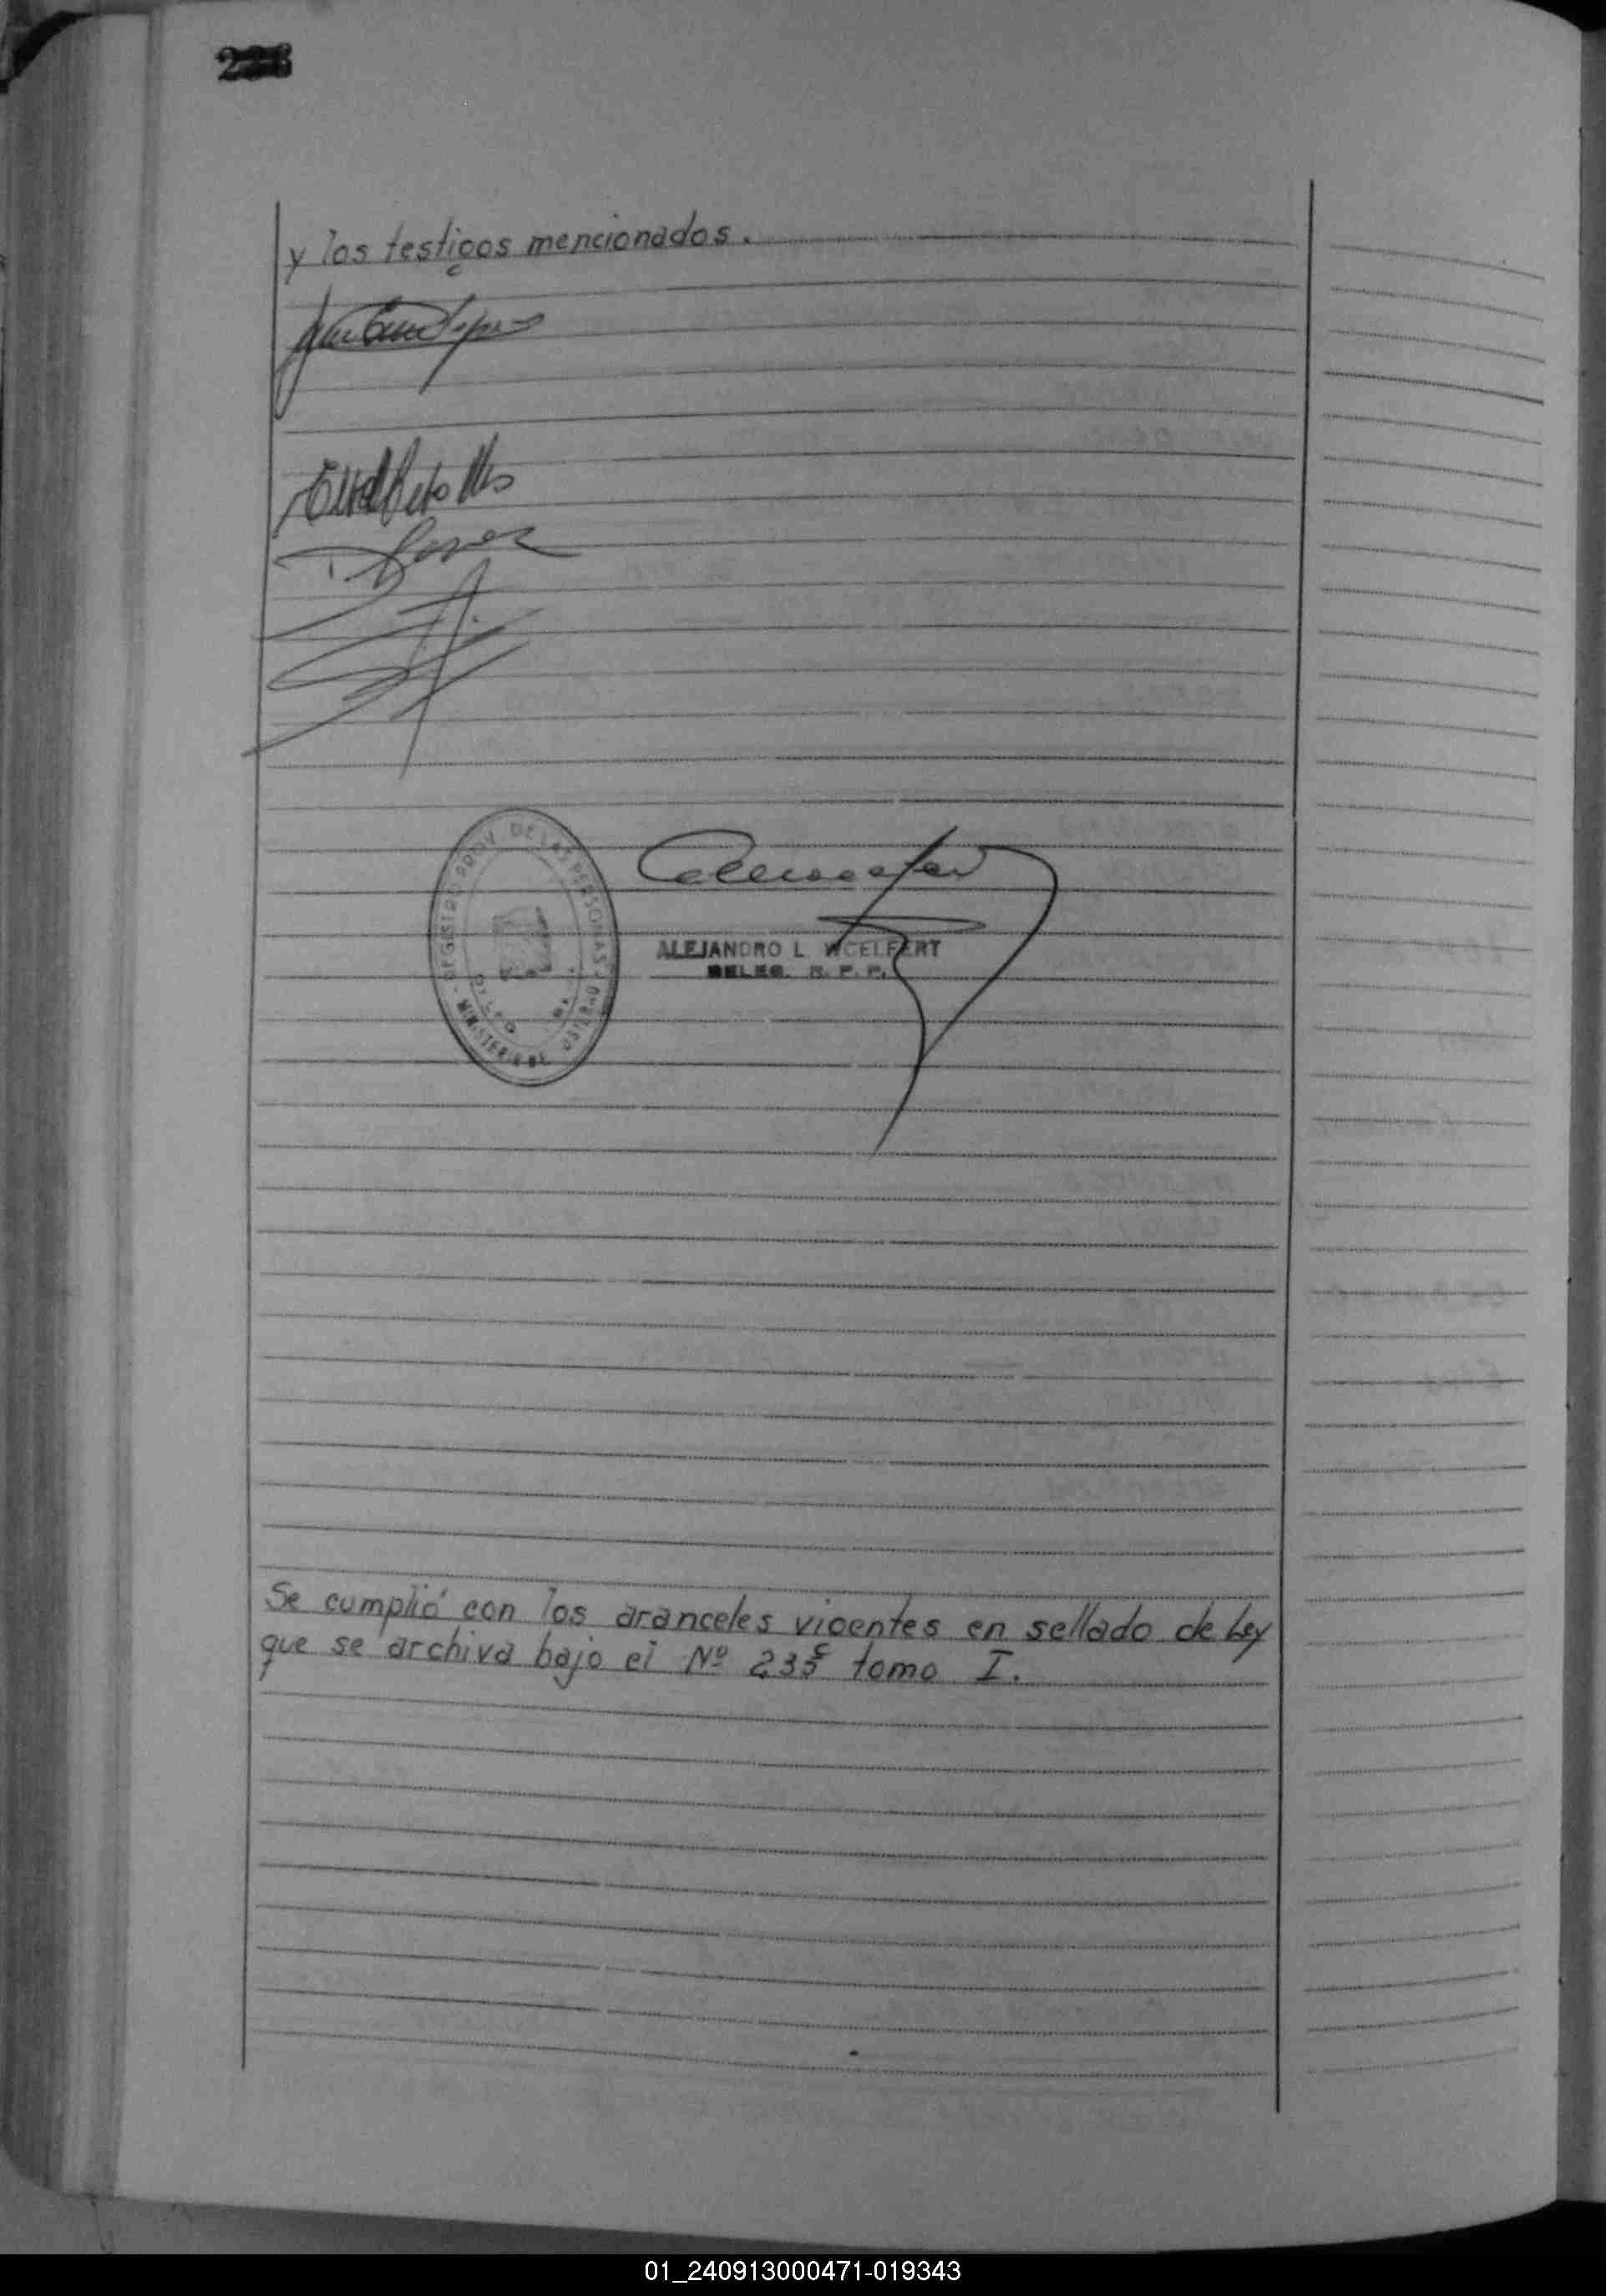 y los testigos mencionados.
REGISTRO PROV. DE LAS PERSONAS
MINISTERIO DE GOBIERNO
ALEJANDRO L. WOELFERT
DELEG. R. P. P.
Se cumplió con los aranceles vigentes en sellado de Ley
que se archiva bajo el Nº 235 tomo I.
01_240913000471-019343